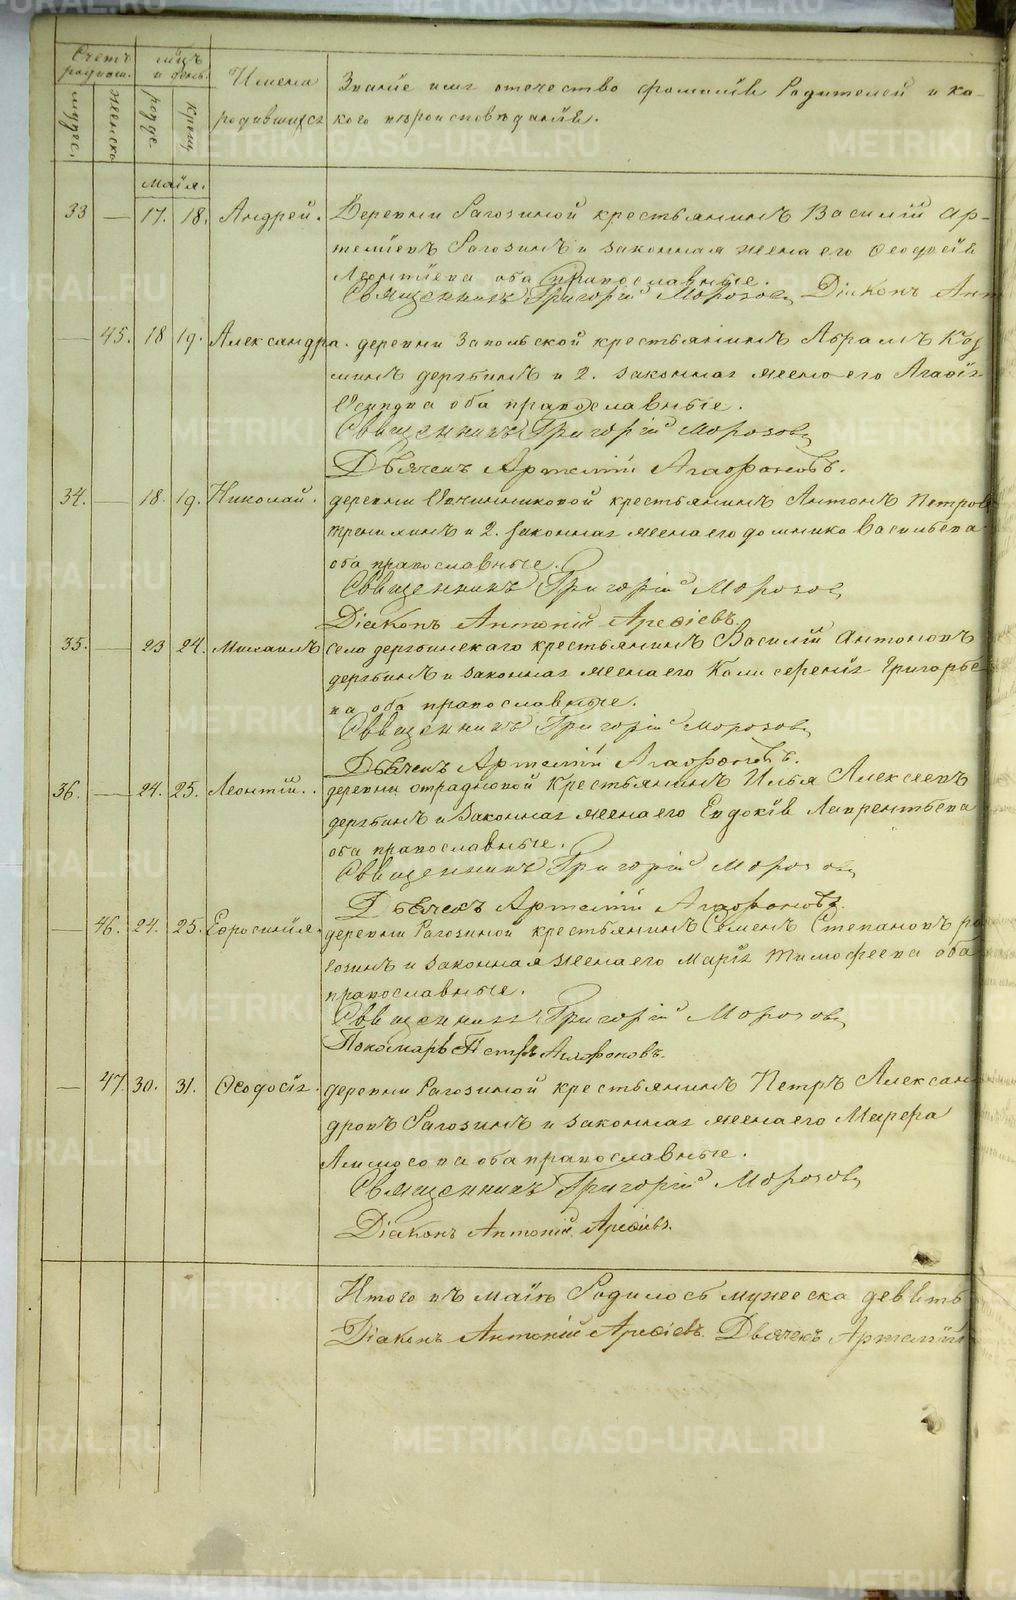 Счетъ родивш.
мѣц. и день.
Имена родившихся
Званіе имя отечество фамиліи Родителей и ка-
кого вѣроисповѣданія.
мужес.
женска
рожде.
крещ.
маія.
33 — 17. 18. Андрей. Деревни Рагозиной крестьянинъ Василій Ар-
темьевъ Рагозинъ и законная жена его Ѳеодосія
Леонтіева оба православные.
Священникъ Григорій Морозовъ Діаконъ Ант
— 45. 18 19. Александра. деревни Запольской крестьянинъ Абрамъ Коз
минъ дерябинъ и 2. законная жена его Агафія
Осипова оба православные.
Священникъ Григорій Морозовъ
Дьячекъ Артемій Агафоновъ.
34. — 18. 19. Николай. деревни Овчинниковой крестьянинъ Антонъ Петров
и 2. законная жена его домника Васильева
оба православные.
Священникъ Григорій Морозов
Діаконъ Антоній Арефіевъ.
35. — 23 24. Михаилъ села дерябинскаго крестьянинъ Василій Антоновъ
дерябинъ и законная жена его Григорье
ва оба православные.
Священникъ Григорій Морозовъ
Дьячекъ Артемій Агафоновъ.
36. — 24. 25. Леонтій. деревни отрадновой Крестьянинъ Илья Алексеевъ
дерябинъ и законная жена его Евдокія Лаврентьева
оба православные.
Священникъ Григорій Морозовъ
Дьячекъ Артемій Агафоновъ.
— 46. 24. 25. Евросинія. деревни Рагозиной крестьянинъ Семенъ Степановъ ра
гозинъ и законная жена его Марія Тимофеева оба
православные.
Священникъ Григорій Морозовъ
Пономарь Петръ Агафоновъ.
— 47. 30. 31. Ѳеодосія. деревни Рагозиной крестьянинъ Петръ Алексан
дровъ Рагозинъ и законная жена его Марфа
оба православные.
Священникъ Григорій Морозовъ
Діаконъ Антоній Арефіевъ.
Итого въ маіѣ Родилось мужеска девять
Діаконъ Антоній Арефіевъ. Дьячекъ Артемій